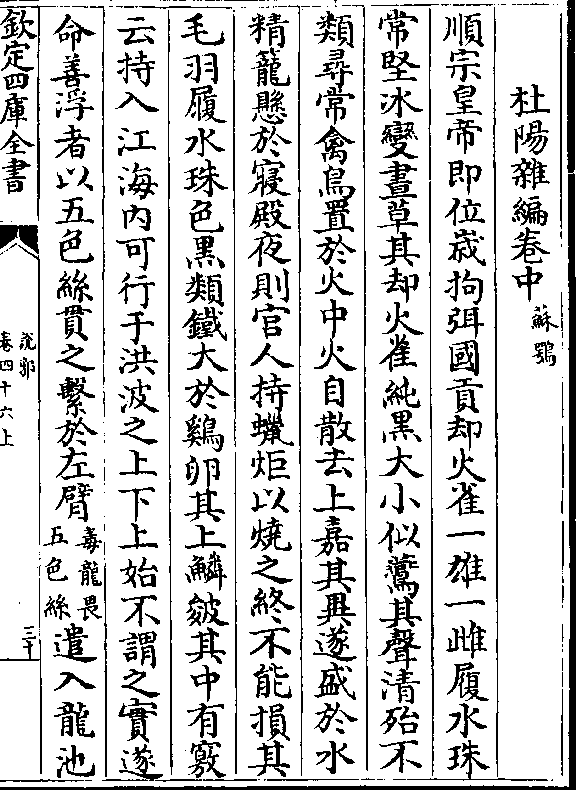 杜陽雜編卷中 蘇鶚
順宗皇帝即位歲拘弭國貢却火雀一雄一雌履水珠
常堅冰變晝草其却火雀純黑大小似鷰其聲清殆不
類尋常禽鳥置於火中火自散去上嘉其異遂盛於水
精籠懸於寢殿夜則官人持蠟炬以燒之終不能損其
毛羽履水珠色黑類鐵大於鷄卵其上鱗皴其中有竅
云持入江海內可行于洪波之上下上始不謂之實遂
命善浮者以五色絲貫之繫於左臂毒龍畏五色絲遣入龍池
欽定四庫全書
說郛
卷四十六上
三十